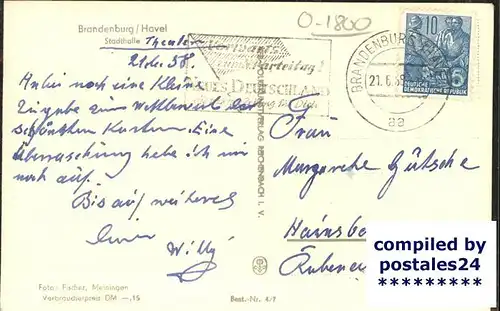 Brandenburg/Havel
Stadthalle Theater
21.6.58.
O-1800
Vorwärts
zum Parteitag!
NEUES DEUTSCHLAND
BRANDENBURG (HAVEL)
21.6.58
aa
10
5
DEUTSCHE
DEMOKRATISCHE REPUBLIK
Anbei noch eine kleine
Zugabe zum Wettbewerb der
schönsten Karten. Eine
Überraschung habe ich mir
noch auf.
Bis auf weiteres
Willy
REICHENBACH I. V.
Frau
Margarethe Gütsche
Foto: Fischer, Meiningen
Verbraucherpreis DM -,15
Best.-Nr. 4/7
compiled by
postales24
*********